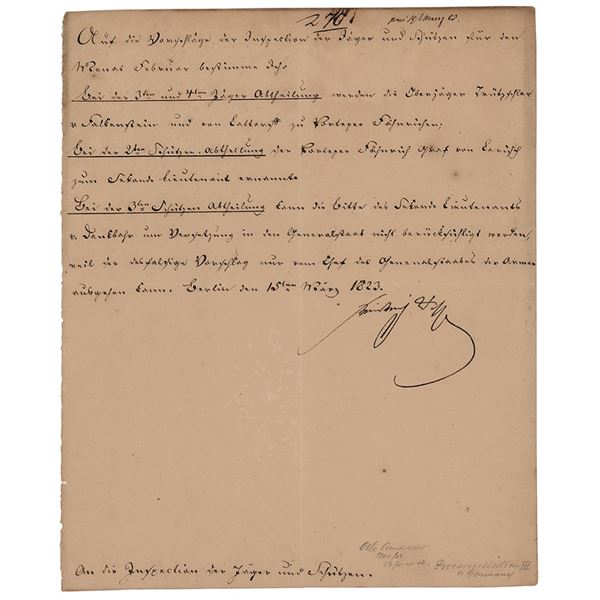 270
Auf die Vorschläge der Inspection der Jäger und Schützen für den
Monat Februar bestimme Ich:
Bei der 3ten und 4ten Jäger Abtheilung werden die Oberjäger Trützschler
v Falkenstein und von zu Portepee Fähnrichen;
Bei der 2ten Schützen-Abtheilung der Portepee Fähnrich Graf von
zum Sekonde Lieutenant ernannt.
Bei der 3ten Schützen Abtheilung kann die Bitte des Sekonde Lieutenants
v. Dankbahr um Versetzung in den Generalstaab nicht berücksichtigt werden,
weil der desfalsige Vorschlag nur vom Chef des Generalstaabes der Armee
ausgehen kann. Berlin den 15ten März 1823.
Friedrich Wilhelm
An die Inspection der Jäger und Schützen.
III
Germany